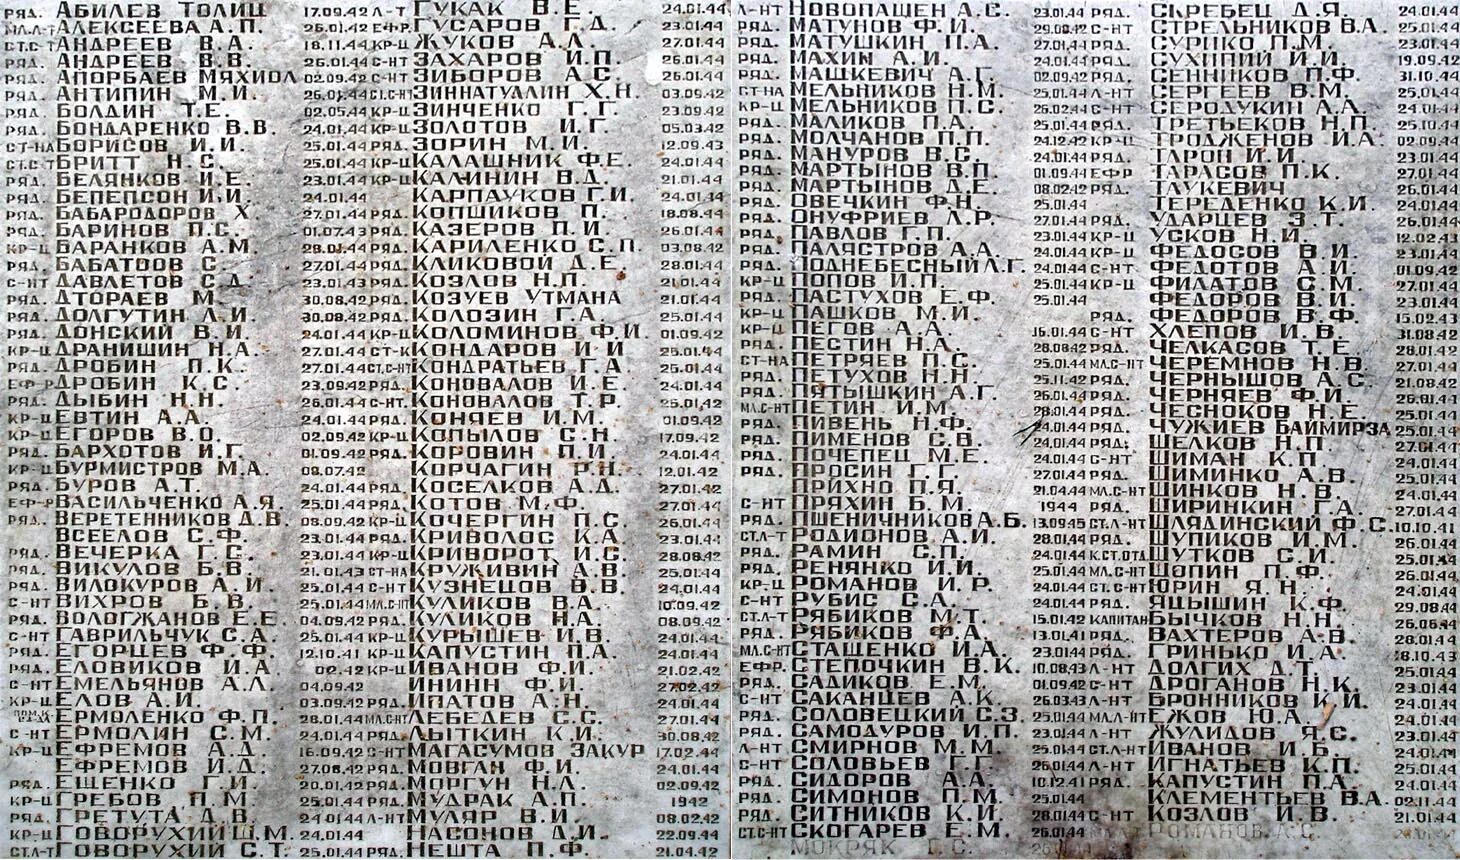 РЯД. АБИЛЕВ ТОЛИЦ 17.09.42
МЛ.Л-Т АЛЕКСЕЕВА А.П. 26.01.42
СТ.С-Т АНДРЕЕВ В.А. 18.11.44
РЯД. АНДРЕЕВ В.В. 26.01.44
РЯД. АПОРБАЕВ МЯХИОЛ 02.09.42
РЯД. АНТИПИН М.И. 26.01.44
РЯД. БОЛДИН Т.Е. 02.05.44
РЯД. БОНДАРЕНКО В.В. 24.01.44
СТ-НА БОРИСОВ И.И. 25.01.44
СТ.С-Т БРИТТ Н.С. 25.01.44
РЯД. БЕЛЯНКОВ И.Е. 23.01.44
РЯД. БЕПЕПСОН И.И. 24.01.44
РЯД. БАБАРОДОРОВ Х. 27.01.44
РЯД. БАРИНОВ П.С. 01.07.43
КР-Ц БАРАНКОВ А.М. 28.01.44
РЯД. БАБАТООВ С. 27.01.44
С-НТ ДАВЛЕТОВ С.Д. 23.01.43
РЯД. ДТОРАЕВ М. 30.08.42
РЯД. ДОЛГУТИН Л.И. 30.08.42
РЯД. ДОНСКИЙ В.И. 24.01.44
КР-Ц ДРАНИШИН Н.А. 27.01.44
РЯД. ДРОБИН П.К. 27.01.44
ЕФ-Р ДРОБИН К.С. 23.09.42
РЯД. ДЫБИН Н.Н. 26.01.44
КР-Ц ЕВТИН А.А. 24.01.44
КР-Ц ЕГОРОВ В.О. 02.09.42
РЯД. БАРХОТОВ И.Г. 01.09.42
КР-Ц БУРМИСТРОВ М.А. 08.07.42
РЯД. БУРОВ А.Т. 24.01.44
ЕФ-Р ВАСИЛЬЧЕНКО А.Я 25.01.44
РЯД. ВЕРЕТЕННИКОВ Д.В. 08.09.42
ВСЕЕЛОВ С.Ф. 23.01.44
РЯД. ВЕЧЕРКА Г.С. 23.01.44
РЯД. ВИКУЛОВ Б.В. 21.01.43
РЯД. ВИЛОКУРОВ А.И. 25.01.44
С-НТ ВИХРОВ Б.В. 25.01.44
РЯД. ВОЛОГЖАНОВ Е.Е. 04.09.42
С-НТ ГАВРИЛЬЧУК С.А. 25.01.44
РЯД. ЕГОРЦЕВ Ф.Ф. 12.10.41
РЯД. ЕЛОВИКОВ И.А. 02.42
С-НТ ЕМЕЛЬЯНОВ А.Л. 04.09.42
КР-Ц ЕЛОВ А.И. 03.09.42
ЕРМОЛЕНКО Ф.П. 28.01.44
С-НТ ЕРМОЛИН С.М. 24.01.44
КР-Ц ЕФРЕМОВ А.Д. 16.09.42
ЕФРЕМОВ И.Д. 27.08.42
РЯД. ЕЩЕНКО Г.И. 20.01.42
КР-Ц ГРЕБОВ П.М. 25.01.44
РЯД. ГРЕТУТА Д.В. 24.01.44
КР-Ц ГОВОРУХИЙ Ш.М. 24.01.44
СТ.Л-Т ГОВОРУХИЙ С.Т. 25.01.44
Л-Т ГУКАК В.Е. 24.01.44
ЕФР. ГУСАРОВ Г.Д. 23.01.44
КР-Ц ЖУКОВ А.Л. 27.01.44
С-НТ ЗАХАРОВ И.П. 26.01.44
С-НТ ЗИБОРОВ А.С. 26.01.44
СТ.С-НТ ЗИННАТУЛЛИН Х.Н. 03.09.42
КР-Ц ЗИНЧЕНКО Г.Г. 23.09.42
КР-Ц ЗОЛОТОВ И.Г. 05.03.42
РЯД. ЗОРИН М.И. 12.09.43
РЯД. КАЛАШНИК Ф.Е. 24.01.44
КР-Ц КАЛИНИН В.Д. 21.01.44
КАРПАУКОВ Г.И. 24.01.44
РЯД. КОПШИКОВ П. 18.08.44
РЯД. КАЗЕРОВ П.И. 26.01.44
РЯД. КАРИЛЕНКО С.П. 03.08.42
РЯД. КЛИКОВОЙ Д.Е. 28.01.44
РЯД. КОЗЛОВ Н.П. 21.01.44
РЯД. КОЗУЕВ УТМАНА 21.01.44
РЯД. КОЛОЗИН Г.А. 25.01.44
КР-Ц КОЛОМИНОВ Ф.И. 01.09.42
СТ-К КОНДАРОВ И.И 25.01.44
СТ.С-НТ КОНДРАТЬЕВ Г.А 25.01.44
РЯД. КОНОВАЛОВ И.Е. 24.01.44
С-НТ. КОНОВАЛОВ Т.Р. 25.01.42
РЯД. КОНЯЕВ И.М. 01.09.42
КР-Ц КОПЫЛОВ С.Н. 17.09.42
РЯД. КОРОВИН П.И. 24.01.44
КОРЧАГИН Р.Н. 12.01.42
РЯД. КОСЕЛКОВ А.Д. 27.01.42
РЯД. КОТОВ М.Ф. 27.01.44
КР-Ц КОЧЕРГИН П.С. 26.01.44
РЯД. КРИВОЛОС К.А. 23.01.44
КР-Ц КРИВОРОТ И.С. 28.08.42
СТ-НА КРУЖИВИН А.В. 25.01.44
С-НТ КУЗНЕЦОВ В.В. 24.01.44
МЛ.С-НТ КУЛИКОВ В.А. 10.09.42
РЯД. КУЛИКОВ Н.А. 08.09.42
КР-Ц КУРЫШЕВ И.В. 24.01.44
КР-Ц КАПУСТИН П.А. 24.01.44
КР-Ц ИВАНОВ Ф.И. 21.02.42
ИНИНН Ф.И. 27.02.42
РЯД. ИПАТОВ А.Н. 24.01.44
МЛ.С-НТ ЛЕБЕДЕВ С.С. 27.01.44
РЯД. ЛЫТКИН К.И. 30.08.42
С-НТ МАГАСУМОВ ЗАКУР 17.02.44
РЯД. МОВГАН Ф.И. 24.01.44
РЯД. МОРГУН Н.Л. 02.09.42
РЯД. МУДРАК А.П. 1942
Л-НТ МУЛЯР В.И. 08.02.42
НАСОНОВ Д.И. 22.09.44
РЯД. НЕШТА П.Ф. 21.04.42
Л-НТ НОВОПАШЕН А.С. 23.01.44
РЯД. МАТУНОВ Ф.И. 29.08.42
РЯД. МАТУШКИН П.А. 27.01.44
РЯД. МАХИН А.И. 23.01.44
РЯД. МАШКЕВИЧ А.Г. 02.09.42
СТ-НА МЕЛЬНИКОВ Н.М. 25.01.44
КР-Ц МЕЛЬНИКОВ П.С. 26.02.44
РЯД. МАЛИКОВ П.А. 25.01.44
РЯД. МОЛЧАНОВ П.П. 24.12.42
РЯД. МАНУРОВ В.С. 24.01.44
РЯД. МАРТЫНОВ В.П. 01.09.44
РЯД. МАРТЫНОВ Д.Е. 08.02.42
РЯД. ОВЕЧКИН Ф.Н. 25.01.44
РЯД. ОНУФРИЕВ Л.Р. 27.01.44
РЯД. ПАВЛОВ Г.П. 23.01.44
РЯД. ПАЛЯСТРОВ А.А. 24.01.44
РЯД. ПОДНЕБЕСНЫЙ Л.Г. 24.01.44
КР-Ц ПОПОВ И.П. 25.01.44
РЯД. ПАСТУХОВ Е.Ф. 25.01.44
КР-Ц ПАШКОВ М.И.
КР-Ц ПЕГОВ А.А. 16.01.44
РЯД. ПЕСТИН Н.А. 28.08.42
СТ-НА ПЕТРЯЕВ П.С. 25.01.44
РЯД. ПЕТУХОВ Н.Н. 25.11.42
РЯД. ПЯТЫШКИН А.Г. 26.01.44
МЛ.С-НТ ПЕТИН И.М. 28.01.44
РЯД. ПИВЕНЬ Н.Ф. 24.01.44
РЯД. ПИМЕНОВ С.В. 24.01.44
РЯД. ПОЧЕПЕЦ М.Е. 24.01.44
РЯД. ПРОСИН Г.Г. 27.01.44
ПРИХНО П.Я. 21.04.44
С-НТ ПРЯХИН Б.М. 1944
РЯД. ПШЕНИЧНИКОВ А.Б. 13.09.45
СТ.Л-Т РОДИОНОВ А.И. 28.01.44
РЯД. РАМИН С.П. 24.01.44
РЯД. РЕНЯНКО И.И. 25.01.44
КР-Ц РОМАНОВ И.Р. 24.01.44
С-НТ РУБИС С.А. 24.01.44
СТ.Л-Т РЯБИКОВ М.Т. 15.01.42
РЯД. РЯБИКОВ Ф.А. 13.01.41
МЛ.С-НТ СТАЩЕНКО И.А. 23.01.44
ЕФР. СТЕПОЧКИН В.К. 10.08.43
РЯД. САДИКОВ Е.М. 01.09.42
С-НТ САКАНЦЕВ А.К. 26.03.43
РЯД. СОЛОВЕЦКИЙ С.З. 25.01.44
РЯД. САМОДУРОВ И.П. 23.01.44
Л-НТ СМИРНОВ М.М. 25.01.44
С-НТ СОЛОВЬЕВ Г.Г. 26.01.44
РЯД. СИДОРОВ А.А. 10.12.41
РЯД. СИМОНОВ П.М. 25.01.44
РЯД. СИТНИКОВ К.И. 28.01.44
СТ.С-НТ СКОГАРЕВ Е.М. 26.01.44
МОКРЯК Г.С.
РЯД. СКРЕБЕЦ Д.Я. 24.01.44
С-НТ СТРЕЛЬНИКОВ В.А. 25.01.44
РЯД. СУРИКО П.М. 23.01.44
РЯД. СУХИПИЙ И.И. 19.09.42
РЯД. СЕННИКОВ П.Ф. 31.10.44
Л-НТ СЕРГЕЕВ В.М. 25.01.44
С-НТ СЕРОДУКИН А.А. 24.01.44
РЯД. ТРЕТЬЕКОВ Н.П. 25.10.44
КР-Ц ТРОДЖЕПОВ И.А. 02.09.44
РЯД. ТАРОН И.И. 23.01.44
ЕФР ТАРАСОВ П.К. 27.01.44
РЯД. ТАУКЕВИЧ 26.01.44
ТЕРЕДЕНКО К.И. 24.01.44
РЯД. УДАРЦЕВ З.Т. 26.01.44
КР-Ц УСКОВ Н.И. 12.02.43
КР-Ц ФЕДОСОВ В.И. 23.01.44
С-НТ ФЕДОТОВ А.И. 01.09.42
КР-Ц ФИЛАТОВ С.М. 27.01.44
ФЕДОРОВ В.И. 23.01.44
РЯД. ФЕДОРОВ В.Ф. 15.02.43
С-НТ ХЛЕПОВ И.В. 31.08.42
РЯД. ЧЕЛКАСОВ Т.Е. 28.01.42
МЛ.С-НТ ЧЕРЕМНОВ Н.В. 27.01.44
РЯД. ЧЕРНЫШОВ А.С. 21.08.42
РЯД. ЧЕРНЯЕВ Ф.И. 26.01.44
РЯД. ЧЕСНОКОВ Н.Е. 25.01.44
РЯД. ЧУЖИЕВ БАЙМИРЗА 25.01.44
РЯД. ШЕЛКОВ Н.П 27.01.44
С-НТ ШИМАН К.П. 24.01.44
РЯД. ШИМИНКО А.В. 24.01.44
МЛ.С-НТ ШИНКОВ Н.В. 24.01.44
РЯД. ШИРИНКИН Г.А. 27.01.44
СТ.Л-НТ ШЛЯДИНСКИЙ Ф.С. 10.10.41
РЯД. ШУПИКОВ И.М. 26.01.44
К.СТ.ОТД ШУТКОВ С.И. 25.01.44
МЛ.С-НТ ШОПИН П.Ф. 26.01.44
СТ.С-НТ ЮРИН Я.Н. 24.01.44
РЯД. ЯЦЫШИН К.Ф. 29.08.44
КАПИТАН БЫЧКОВ Н.Н. 26.06.44
РЯД. ВАХТЕРОВ А.В. 28.01.44
РЯД. ГРИНЬКО И.А. 18.10.43
Л-НТ ДОЛГИХ Д.Т. 25.01.44
С-НТ ДРОГАНОВ Н.К. 23.01.44
Л-НТ БРОННИКОВ К.И. 24.01.44
МЛ.Л-НТ ЕЖОВ Ю.А. 24.01.44
Л-НТ ЖУЛИДОВ Я.С. 23.01.44
СТ.Л-НТ ИВАНОВ И.Б. 24.01.44
Л-НТ ИГНАТЬЕВ К.П. 25.01.44
РЯД. КАПУСТИН П.А. 24.01.44
КЛЕМЕНТЬЕВ В.А. 02.11.44
С-НТ КОЗЛОВ И.В. 21.01.44
РОМАНОВ А.С.